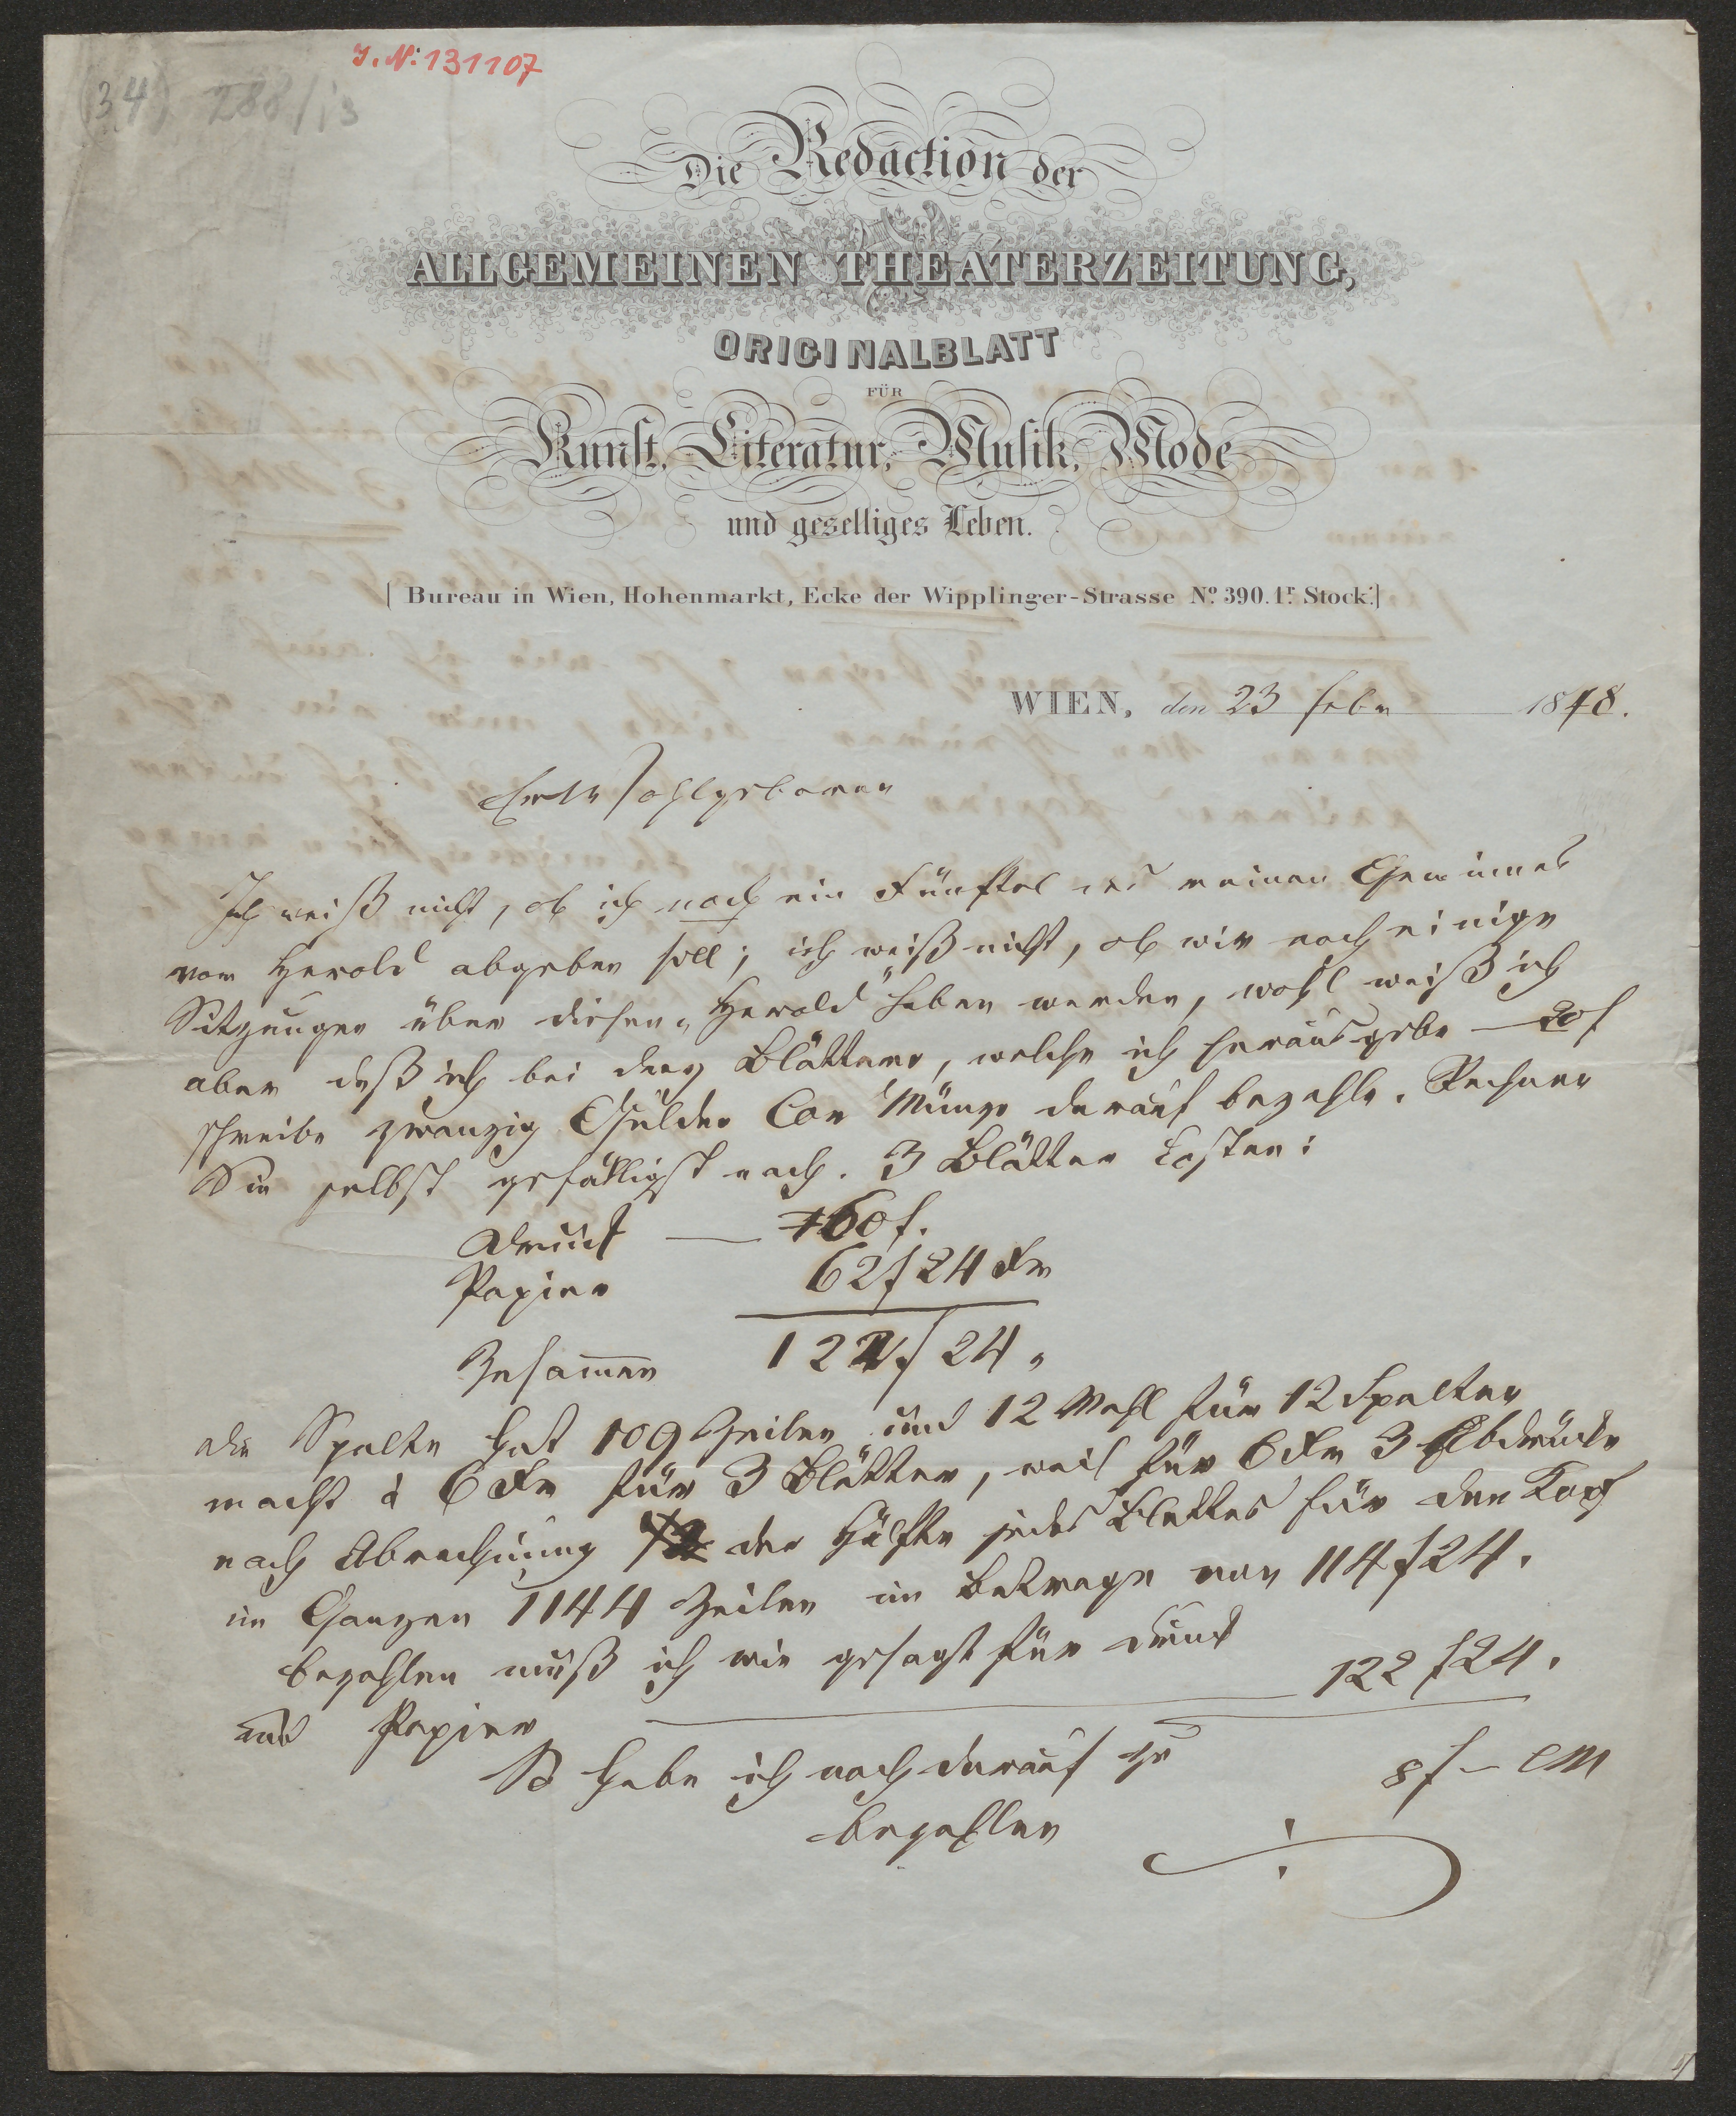 I. N: 131107
(34) 288/13
Die Redaction der
ALLGEMEINEN THEATERZEITUNG,
ORIGINALBLATT
FÜR
Kunst, Literatur, Musik, Mode
und geselliges Leben.
[Bureau in Wien, Hohenmarkt, Ecke der Wipplinger-Strasse No. 390. 1r. Stock.]
WIEN, den 23 Febr 1848.
Euer Wohlgeboren
Ich weiß nicht, ob ich noch ein Fünftel meines Gewinnes
vom Herold abgeben soll; ich weiß nicht, ob wir noch einige
Sitzungen über diesen „Herold" haben werden, wohl weiß ich
aber daß ich bei den Blättern, welche ich herausgebe – 20 f
schreibe zwanzig Gulden Con Münze darauf bezahle. Rechnen
Sie selbst gefälligst nach. 3 Blätter kosten:
Druck — 60 f.
Papier 62 f 24 Kr
Zusammen 122 f 24 „
die Spalte hat 109 Zeilen und 12 Mahl für 12 Spalten
macht à 6 Kr für 3 Blätter, weil für 6 Kr 3 Abdrücke
nach Abrechnung der Hälfte jedes Blattes für den Kopf
im Ganzen 1144 Zeilen im Betrage von 114 f 24.
bezahlen muß ich wie gesagt für Druck
und Papier — 122 f 24.
So habe ich noch darauf zu 8 f – CM
bezahlen